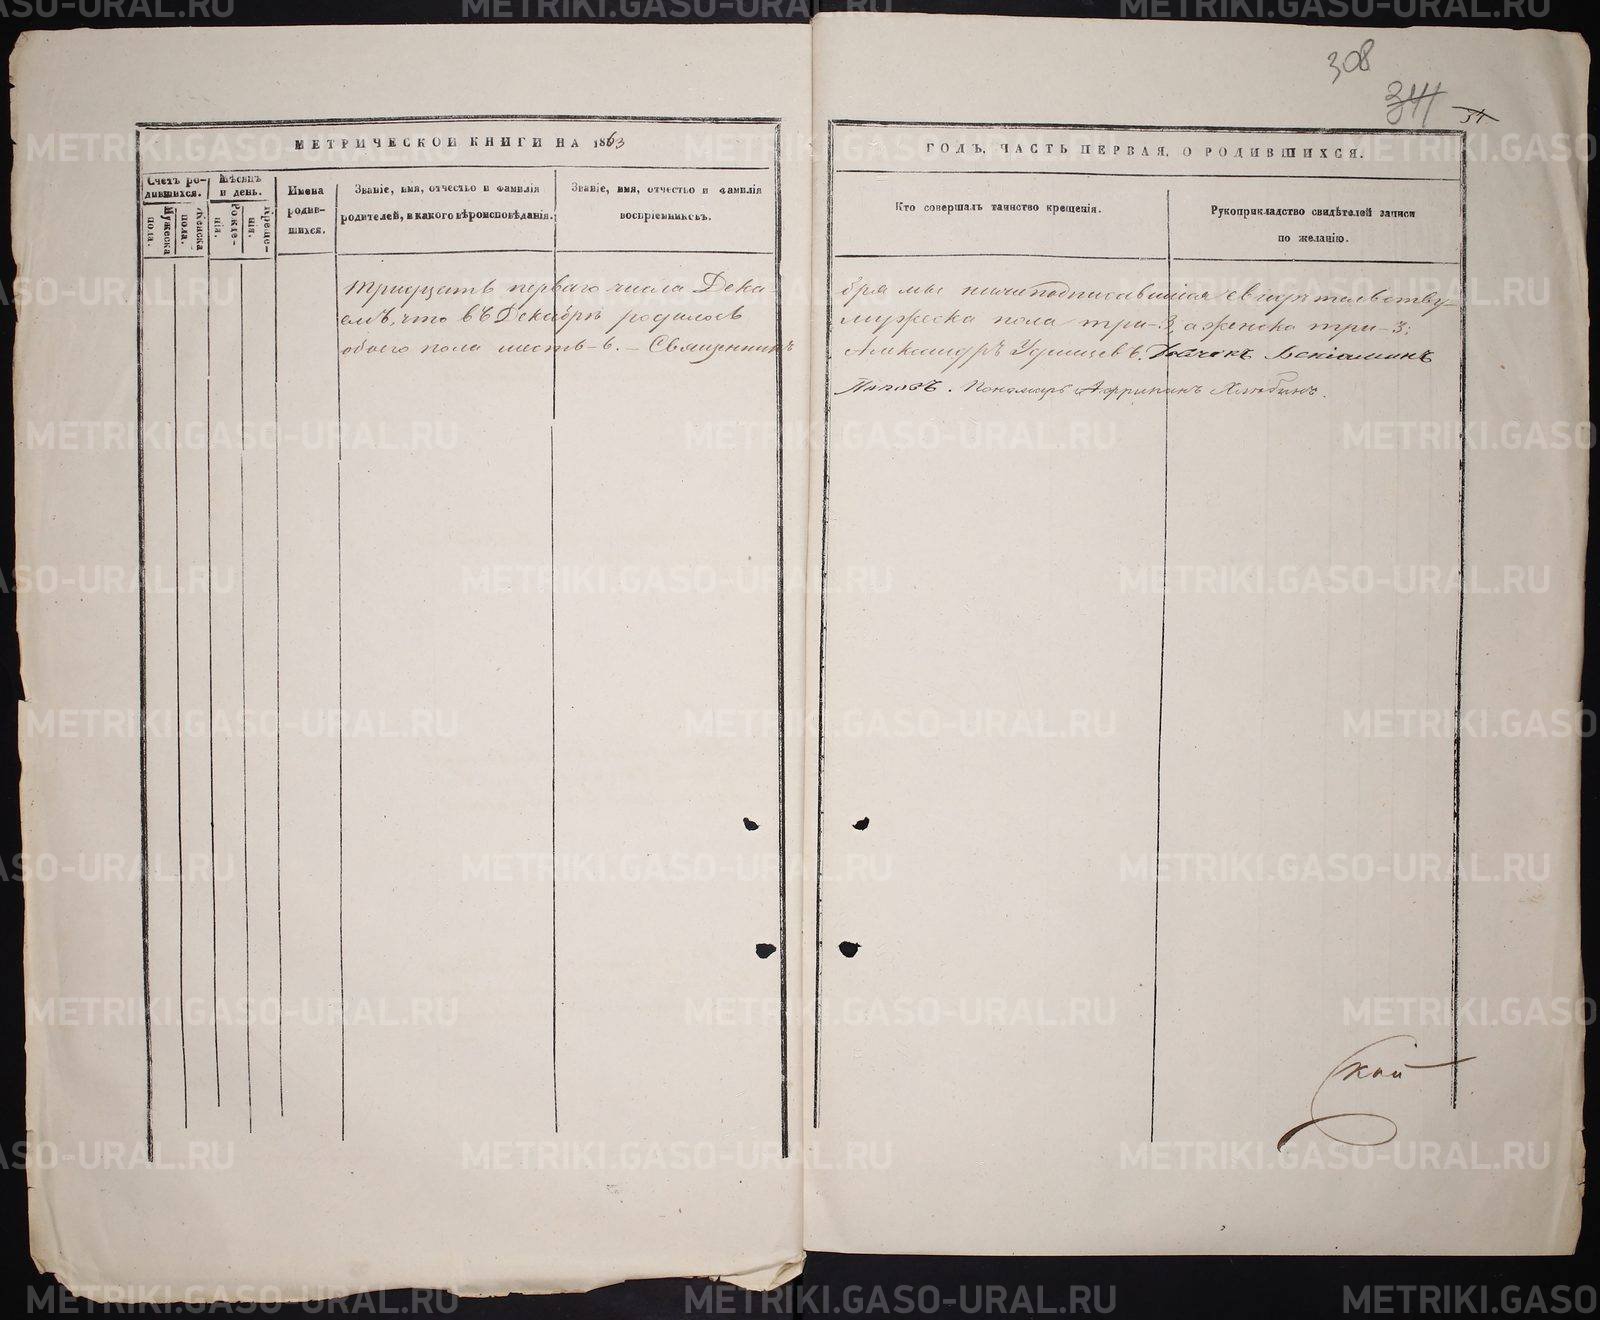 308
311
51
МЕТРИЧЕСКОЙ КНИГИ НА 1863
ГОДЪ, ЧАСТЬ ПЕРВАЯ, О РОДИВШИХСЯ.
Счетъ родившихся.
Мужеска пола.
Женска пола.
Мѣсяцъ и день.
Рожденія.
Крещенія.
Имена родившихся.
Званіе, имя, отчество и фамилія
родителей, и какого вѣроисповѣданія.
Званіе, имя, отчество и фамилія
воспріемниковъ.
Кто совершалъ таинство крещенія.
Рукоприкладство свидѣтелей записи
по желанію.
Тридцать перваго числа Дека
бря мы нижеподписавшіеся свидѣтельству-
емъ, что въ Декабрѣ родилось
мужеска пола три-3, а женска три-3;
обоего пола шесть-6. - Священникъ
Александръ Дьячекъ Веніаминъ
Поповъ. Пономарь Африканъ Хлюбинъ.
ской
METRIKI.GASO-URAL.RU